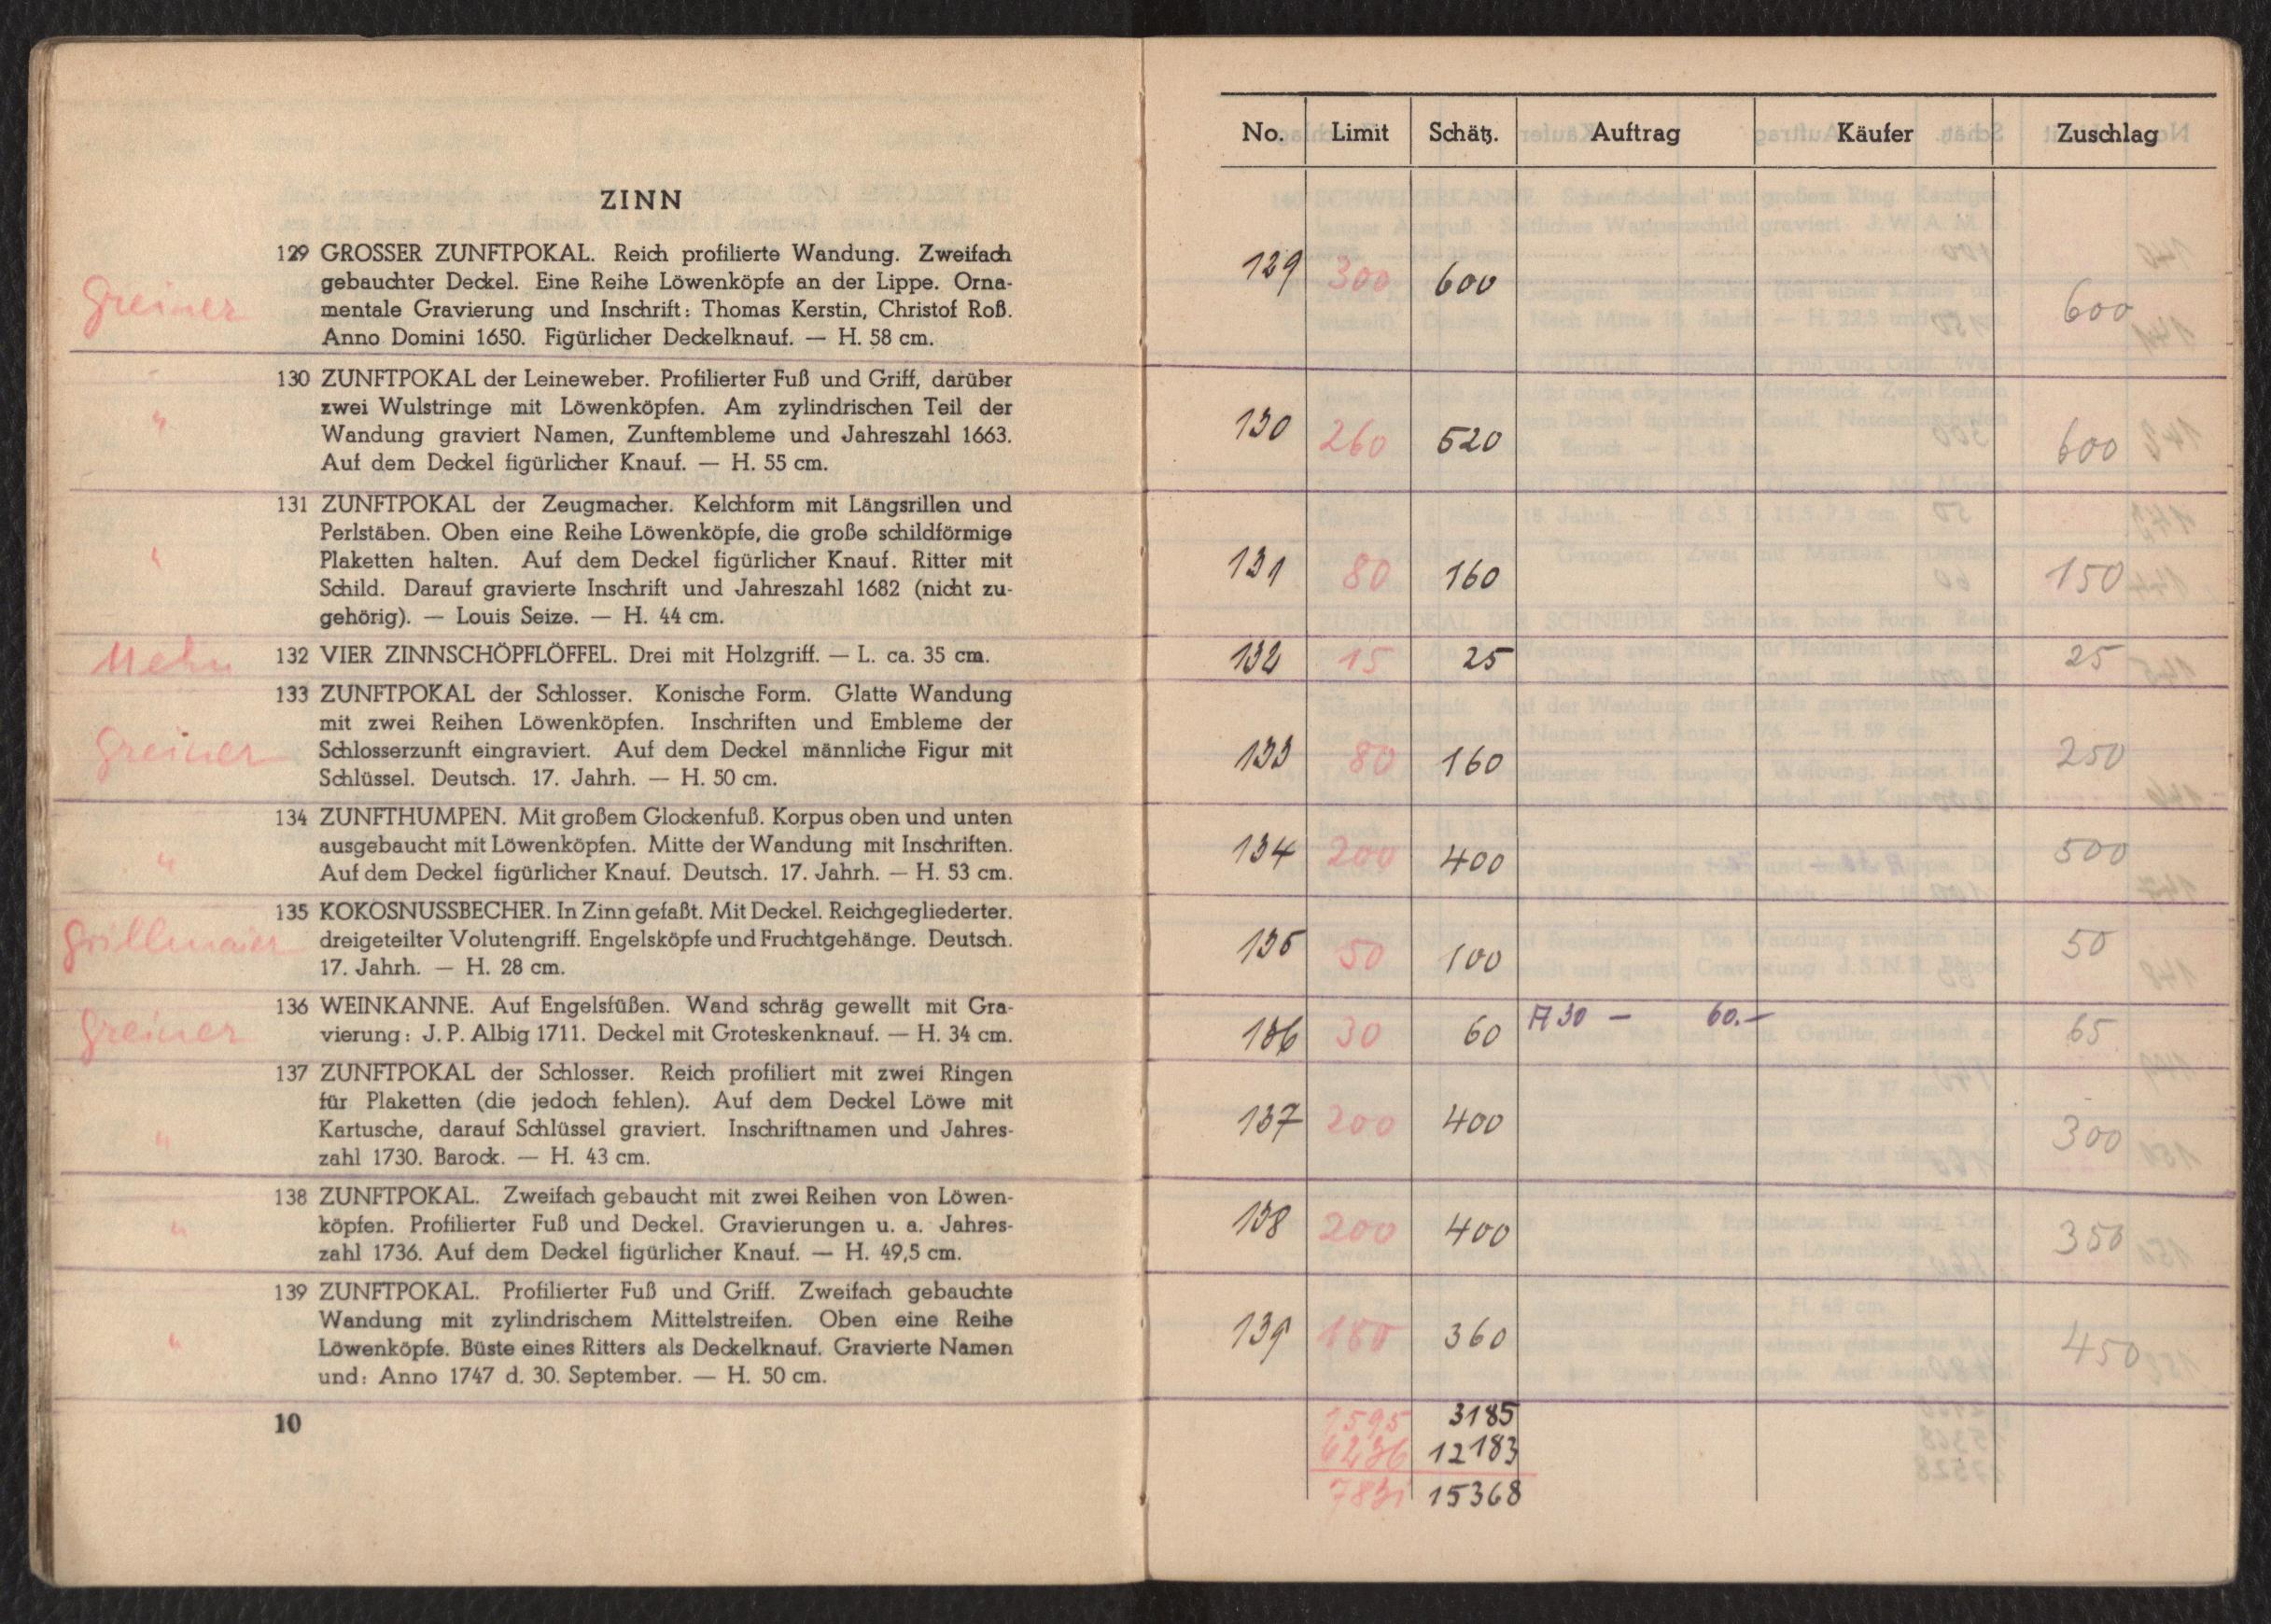 ZINN
129 GROSSER ZUNFTPOKAL. Reich profilierte Wandung. Zweifach
gebauchter Deckel. Eine Reihe Löwenköpfe an der Lippe. Orna-
Greiner mentale Gravierung und Inschrift: Thomas Kerstin, Christof Roß.
Anno Domini 1650. Figürlicher Deckelknauf. — H. 58 cm.
130 ZUNFTPOKAL der Leineweber. Profilierter Fuß und Griff, darüber
" zwei Wulstringe mit Löwenköpfen. Am zylindrischen Teil der
Wandung graviert Namen, Zunftembleme und Jahreszahl 1663.
Auf dem Deckel figürlicher Knauf. — H. 55 cm.
131 ZUNFTPOKAL der Zeugmacher. Kelchform mit Längsrillen und
Perlstäben. Oben eine Reihe Löwenköpfe, die große schildförmige
" Plaketten halten. Auf dem Deckel figürlicher Knauf. Ritter mit
Schild. Darauf gravierte Inschrift und Jahreszahl 1682 (nicht zu-
gehörig). — Louis Seize. — H. 44 cm.
132 VIER ZINNSCHÖPFLÖFFEL. Drei mit Holzgriff. — L. ca. 35 cm.
133 ZUNFTPOKAL der Schlosser. Konische Form. Glatte Wandung
mit zwei Reihen Löwenköpfen. Inschriften und Embleme der
Greiner Schlosserzunft eingraviert. Auf dem Deckel männliche Figur mit
Schlüssel. Deutsch. 17. Jahrh. — H. 50 cm.
134 ZUNFTHUMPEN. Mit großem Glockenfuß. Korpus oben und unten
" ausgebaucht mit Löwenköpfen. Mitte der Wandung mit Inschriften.
Auf dem Deckel figürlicher Knauf. Deutsch. 17. Jahrh. — H. 53 cm.
135 KOKOSNUSSBECHER. In Zinn gefaßt. Mit Deckel. Reichgegliederter.
Grillmaier dreigeteilter Volutengriff. Engelsköpfe und Fruchtgehänge. Deutsch.
17. Jahrh. — H. 28 cm.
136 WEINKANNE. Auf Engelsfüßen. Wand schräg gewellt mit Gra-
Greiner vierung: J. P. Albig 1711. Deckel mit Groteskenknauf. — H. 34 cm.
137 ZUNFTPOKAL der Schlosser. Reich profiliert mit zwei Ringen
für Plaketten (die jedoch fehlen). Auf dem Deckel Löwe mit
" Kartusche, darauf Schlüssel graviert. Inschriftnamen und Jahres-
zahl 1730. Barock. — H. 43 cm.
138 ZUNFTPOKAL. Zweifach gebaucht mit zwei Reihen von Löwen-
" köpfen. Profilierter Fuß und Deckel. Gravierungen u. a. Jahres-
zahl 1736. Auf dem Deckel figürlicher Knauf. — H. 49,5 cm.
139 ZUNFTPOKAL. Profilierter Fuß und Griff. Zweifach gebauchte
Wandung mit zylindrischem Mittelstreifen. Oben eine Reihe
" Löwenköpfe. Büste eines Ritters als Deckelknauf. Gravierte Namen
und: Anno 1747 d. 30. September. — H. 50 cm.
10
No. Limit Schätz. Auftrag Käufer Zuschlag
129 300 600 600
130 260 520 600
131 80 160 150
132 15 25 25
133 80 160 250
134 200 400 500
135 50 100 50
136 30 60 A 30 — 60.— 65
137 200 400 300
138 200 400 350
139 180 360 450
1595 3185
6236 12183
7831 15368